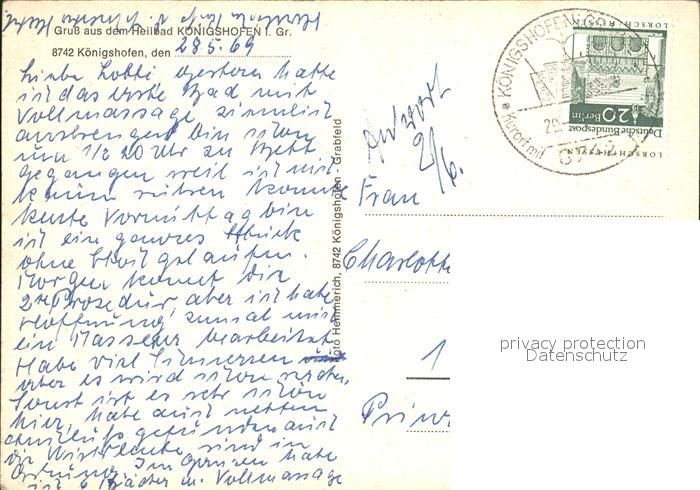 Gruß aus dem Heilbad KÖNIGSHOFEN i. Gr.
8742 Königshofen, den 28.5.69
Liebe Lotti gestern hatte
ich das erste Bad mit
Vollmassage ziemlich
anstrengend bin schon
um 1/2 20 Uhr zu Bett
gegangen weil ich mich
kaum rühren konnte
heute Vormittag bin
ich ein ganzes Stück
ohne Stock gelaufen.
Morgen kommt die
2te Prozedur, aber ich habe
Hoffnung, zumal mich
ein Masseur bearbeitet
Habe viel Schmerzen
aber es wird schon werden,
Sonst ist es sehr schön
hier, habe auch netten
Anschluß gefunden auch
die Wirtsleute sind in
Ordnung. Im ganzen habe
ich 6 Bäder m. Vollmassage
Foto Heinmerich, 8742 Königshofen - Grabfeld
Antwort
2/6.
Frau
Charlotte
1
KÖNIGSHOFEN
Kurort mit
8742
LORSCH/HESSEN
20
Berlin
Deutsche Bundespost
LORSCH/HESSEN
privacy protection
Datenschutz